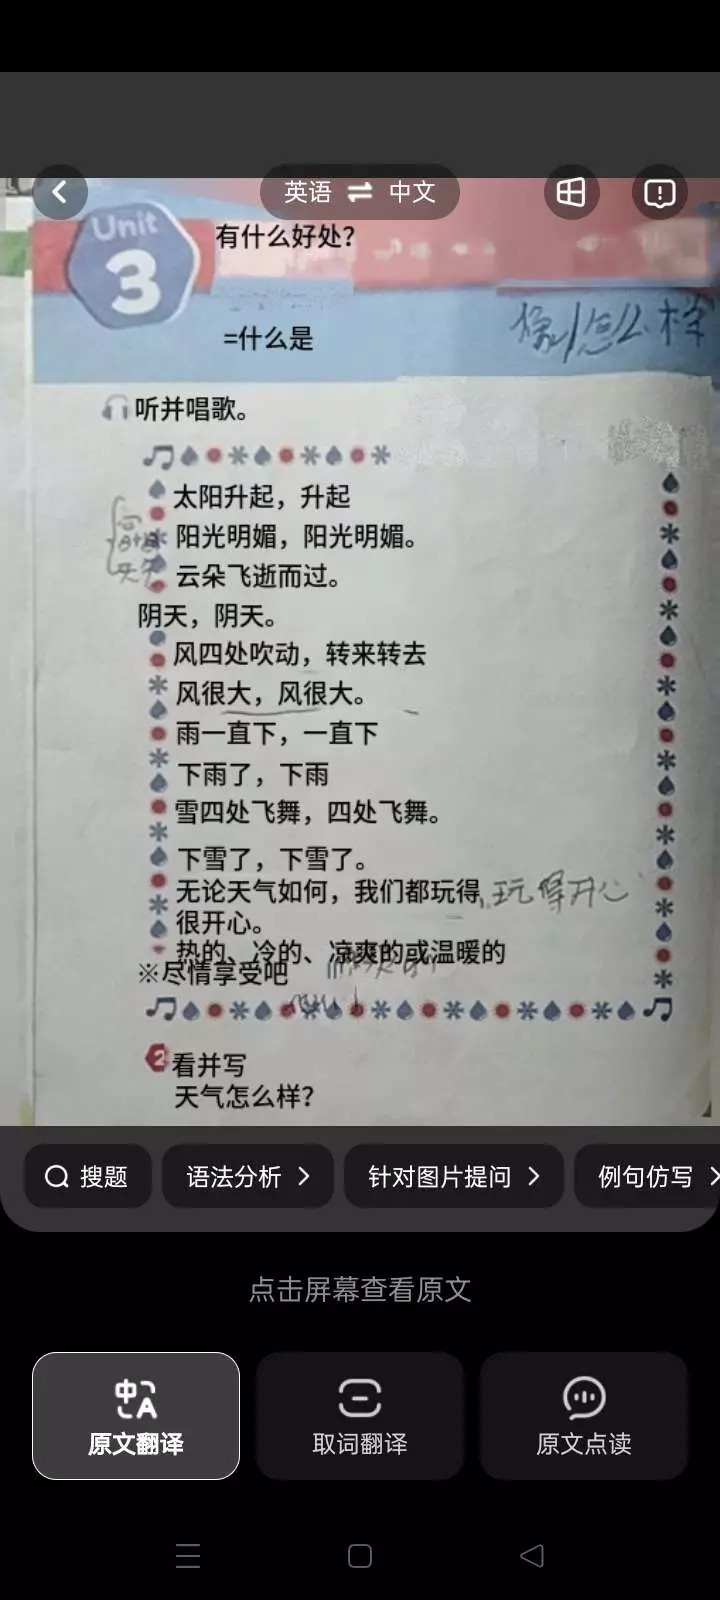 英语 ⇌ 中文
Unit
3
有什么好处?
=什么是
像/怎么样
听并唱歌。
太阳升起，升起
阳光明媚，阳光明媚。
云朵飞逝而过。
阴天，阴天。
风四处吹动，转来转去
风很大，风很大。
雨一直下，一直下
下雨了，下雨
雪四处飞舞，四处飞舞。
下雪了，下雪了。
无论天气如何，我们都玩得 玩得开心
很开心。
热的、冷的、凉爽的或温暖的
※尽情享受吧
2 看并写
天气怎么样?
搜题
语法分析 >
针对图片提问 >
例句仿写 >
点击屏幕查看原文
中A
原文翻译
取词翻译
原文点读